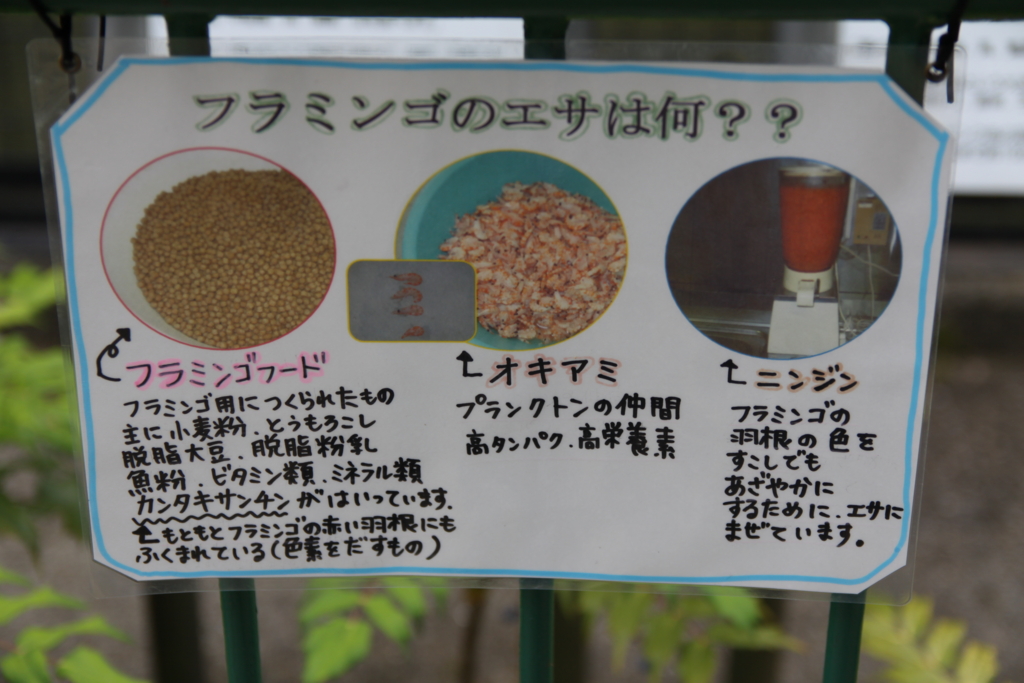 フラミンゴのエサは何？？
フラミンゴフード
フラミンゴ用につくられたもの
主に小麦粉、とうもろこし
脱脂大豆、脱脂粉乳
魚粉、ビタミン類、ミネラル類
カンタキサンチンがはいっています.
もともとフラミンゴの赤い羽根にも
ふくまれている(色素をだすもの)
オキアミ
プランクトンの仲間
高タンパク、高栄養素
ニンジン
フラミンゴの
羽根の色を
すこしでも
あざやかに
するために、エサに
まぜています。